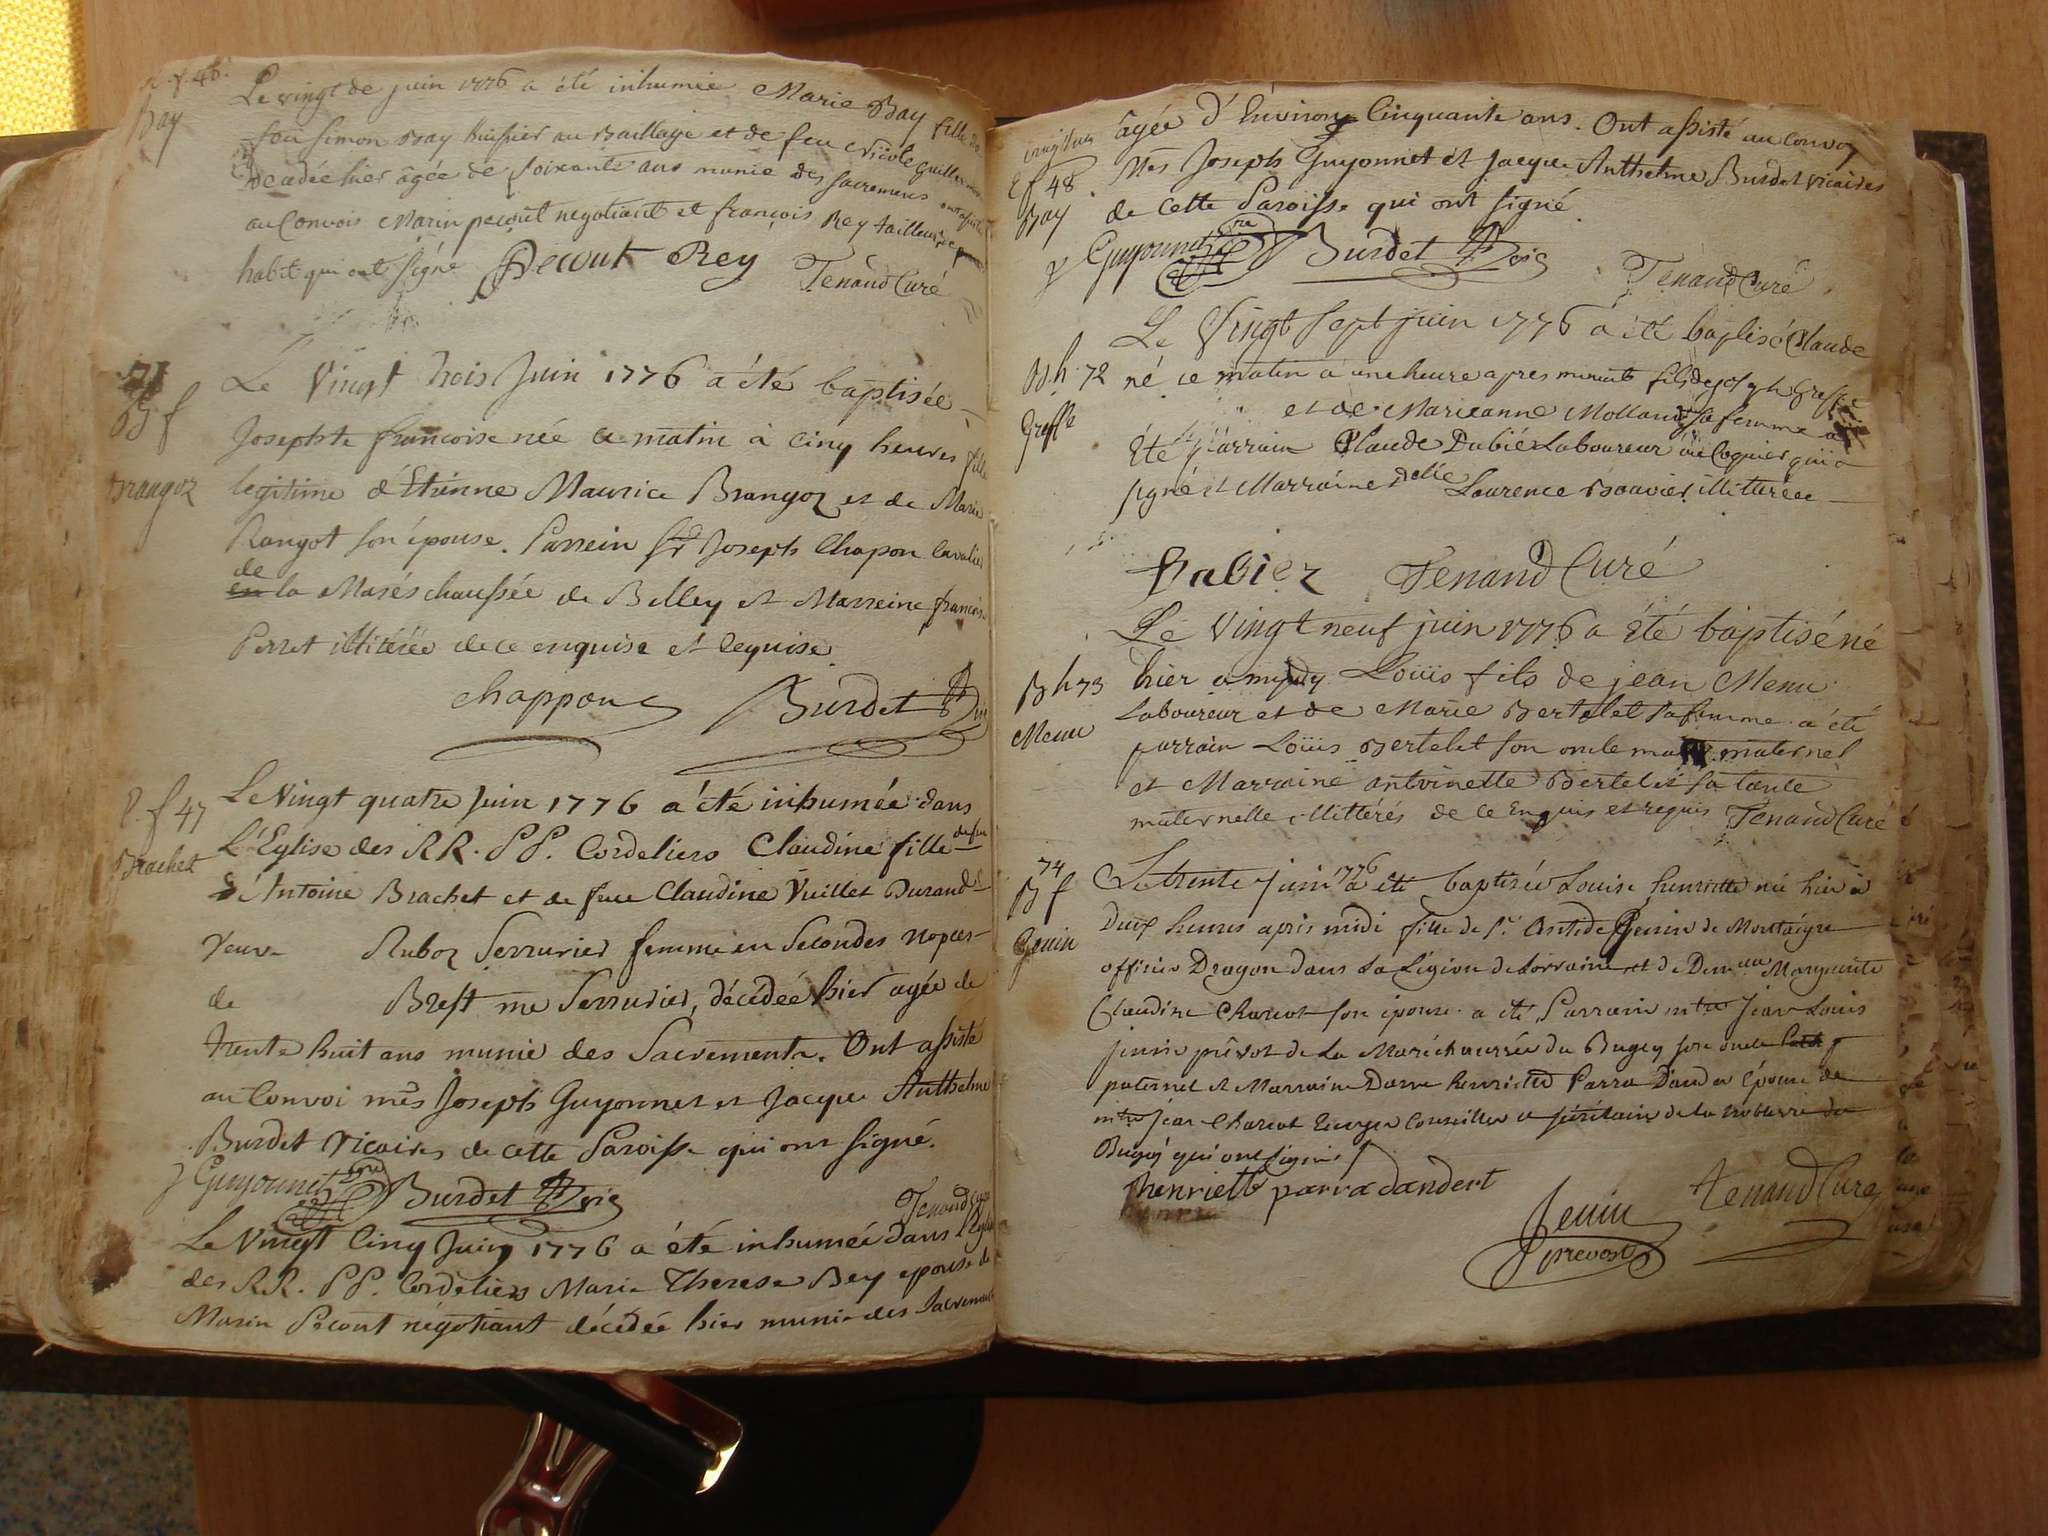 f. 46.
Bay
Le vingt de juin 1776 a été inhumée Marie Bay fille de
feu Simon Bay huissier au Baillage et de feu Nicole
décédée hier âgée de soixante ans munie des sacremens
au Convois Marin pecout negotiant et françois Rey tailleur
habit qui ont signé Pecout Rey Tenand Curé
71
B f
Brangoz
Le Vingt trois Juin 1776 a été baptisée
Josephte francoise née ce matin à cinq heures fille
legitime d'Etienne Maurice Brangoz et de Marie
Rangot son épouse. Parrein Sr Joseph Chapon Cavalier
de
en la Maréschaussée de Belley et Marreine francoise
Perret illitérée de ce enquise et requise.
chappon Burdet Vic
P. f 47
Brachet
Le Vingt quatre Juin 1776 a été inhumée dans
L'Eglise des RR. PP. Cordeliers Claudine fille de feu
d'Antoine Brachet et de feue Claudine Vuillet Durand
Veuve Ruboz Serrurier femme en Secondes nopces
de Brest me Serrurier, décédée hier agée de
trente huit ans munie des Sacrements. Ont assisté
au Convoi mrs Joseph Guyonnet et Jacque Anthelme
Burdet Vicaires de cette Paroisse qui ont signé.
J Guyonnet vre Burdet Vic Tenand Curé
Le Vingt Cinq Juin 1776 a été inhumée dans l'Eglise
des RR. PP. Cordeliers Marie Therese Bey epouse de
Marin Pecout négotiant décédée hier munie des Sacrements
P f 48
Bay
âgée d'Environ Cinquante ans. Ont assisté au convoy
Mrs Joseph Guyonnet et Jacque Anthelme Burdet vicaires
de cette Paroisse qui ont signé.
J Guyonnet vre Burdet Vic Tenand Curé
B h. 72
Greffe
Le Vingt Sept juin 1776 a été baptisé Claude
né ce matin a une heure apres minuit fils de joseph Greffe
et de Marieanne Molland sa femme a
Été parrain Claude Dubié Laboureur au Coquier qui a
signé et Marraine delle Laurence Bouvier illitérée
Babiez Tenand Curé
B h 73
Menu
Le Vingt neuf juin 1776 a Été baptisé né
hier a midy Loüis fils de jean Menu
Laboureur et de Marie Bertelet sa femme a été
parrain Loüis Bertelet son oncle maternel
et Marraine antoinette Bertelet sa tante
maternelle illitérés de ce Enquis et requis Tenand Curé
74
B f
Genin
Le trente Juin 1776 a été baptisée Louise henriette née hier à
deux heures après midi fille de Sr Genin de Montaigre
officier Dragon dans La Légion de Lorraine et de Marguerite
Claudine Charcot son épouse a été Parrain mtre Jean Louis
jenin prévot de La Maréchaussée du Bugey son oncle
paternel et Marraine Dame henriette Parra Dandert épouse de
mtre jean Charcot Ecuyer Conseiller et sécrétaire de la noblesse du
Bugey qui ont signé
henriette parra dandert
Jenin
prevost
Tenand Curé